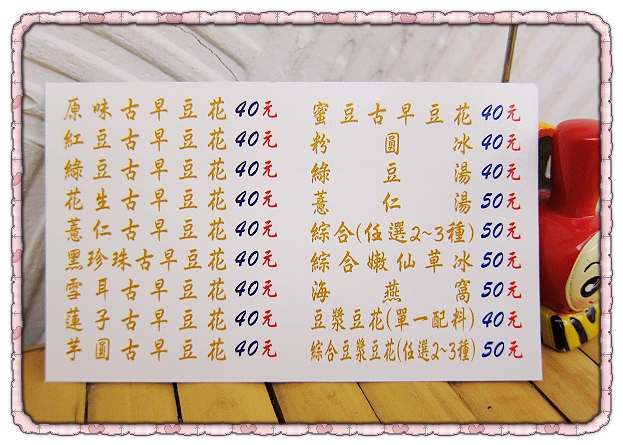 原味古早豆花 40元
紅豆古早豆花 40元
綠豆古早豆花 40元
花生古早豆花 40元
薏仁古早豆花 40元
黑珍珠古早豆花 40元
雪耳古早豆花 40元
蓮子古早豆花 40元
芋圓古早豆花 40元
蜜豆古早豆花 40元
粉圓冰 40元
綠豆湯 40元
薏仁湯 50元
綜合(任選2~3種) 50元
綜合嫩仙草冰 50元
海燕窩 50元
豆漿豆花(單一配料) 40元
綜合豆漿豆花(任選2~3種) 50元